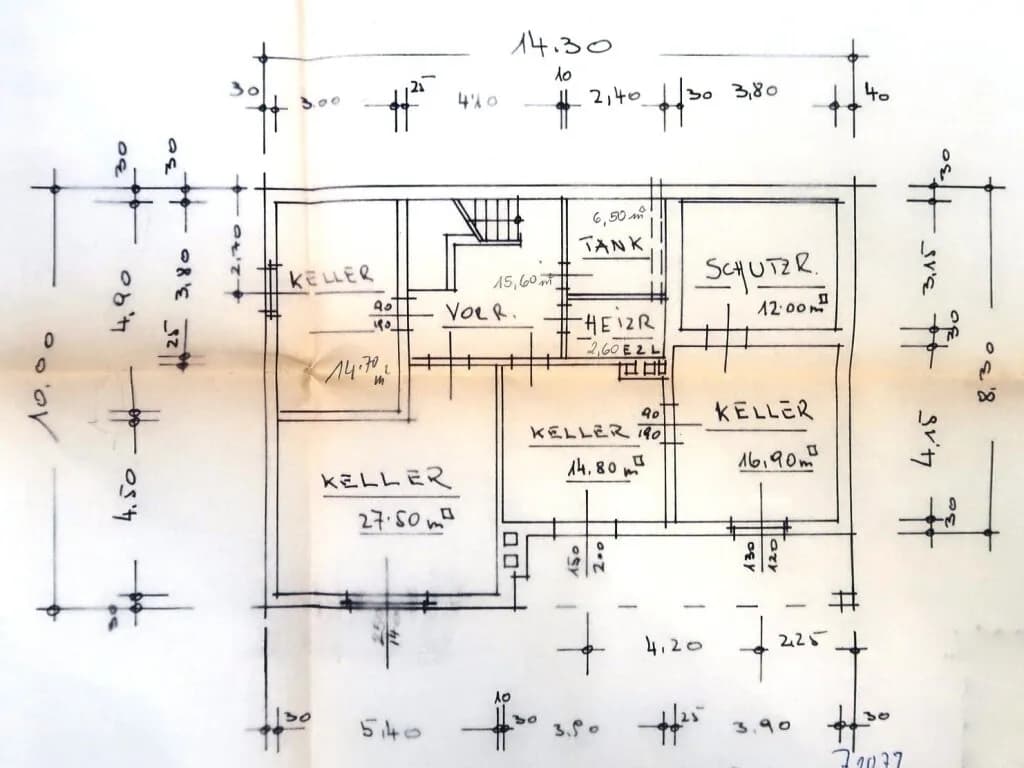 14.30
30 3.00 25 4.10 10 2,40 30 3,80 40
30 30 30
10.00 4,90 3,80 2,70 25 4.50 30
30 3,15 30 8.30 4,15 30
KELLER
90
190
14.70
m²
15,60 m
VORR.
6,50 m
TANK
HEIZR
2,60 EZL
SCHUTZR.
12.00 m
KELLER
27.50 m
KELLER
14.80 m
90
190
KELLER
16,90 m
150
200
130
120
4,20 2.25
30 5,40 10 30 25 3.90 30